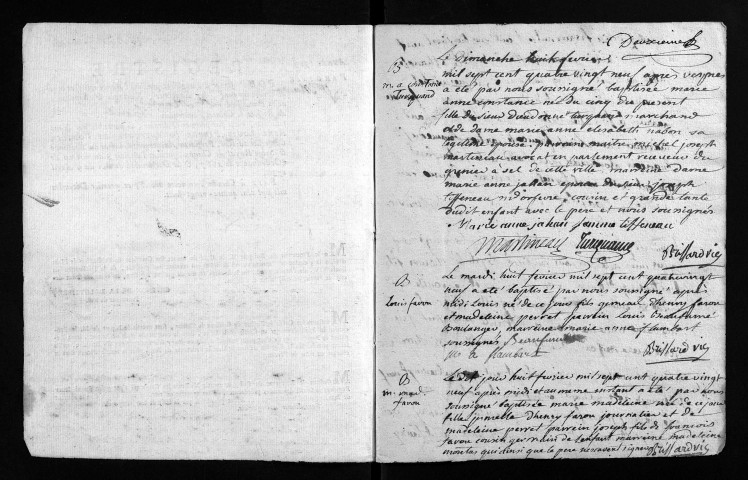 Deuxieme
Le dimanche huit fevrier
mil sept cent quatre vingt neuf apres vespres
a eté par nous soussigné baptisée marie
anne constance née du cinq du present
fille de sieur turquand marchand
et de dame marie anne elisabeth nabon sa
legitime epouse parrein maitre michel joseph
martineau avocat en parlement receveur du
grenier a sel de cette ville marreine dame
marie anne jahan epouse de sieur joseph
tiffeneau md orfevre cousin et grande tante
dudit enfant avec le pere et nous soussignés
Marie anne jahan femme tiffeneau
Martineau Turquand
Brissard vic
B
m. a. constance
Turquand
Le mardi huit fevrier mil sept cent quatrevingt
neuf a eté baptisé par nous soussigné apres
midi Louis né de ce jour fils gemeau d'henry favou
et madeleine perret parrein Louis
Boulanger, marreine marie anne flambart
soussignés
m. a. flambart Brissard vic
B
Louis favou
Le dit jour huit fevrier mil sept cent quatre vingt
neuf apres midi et au meme instant a eté par nous
soussigné baptisée marie madeleine née de ce jour
fille jumelle d'henry favou journalier et de
madeleine perret parrein joseph fils de francois
favou cousin germain de l'enfant marreine madeleine
qui ainsi que le pere ne savent signer Brissard vic
B
m. magd.
favou